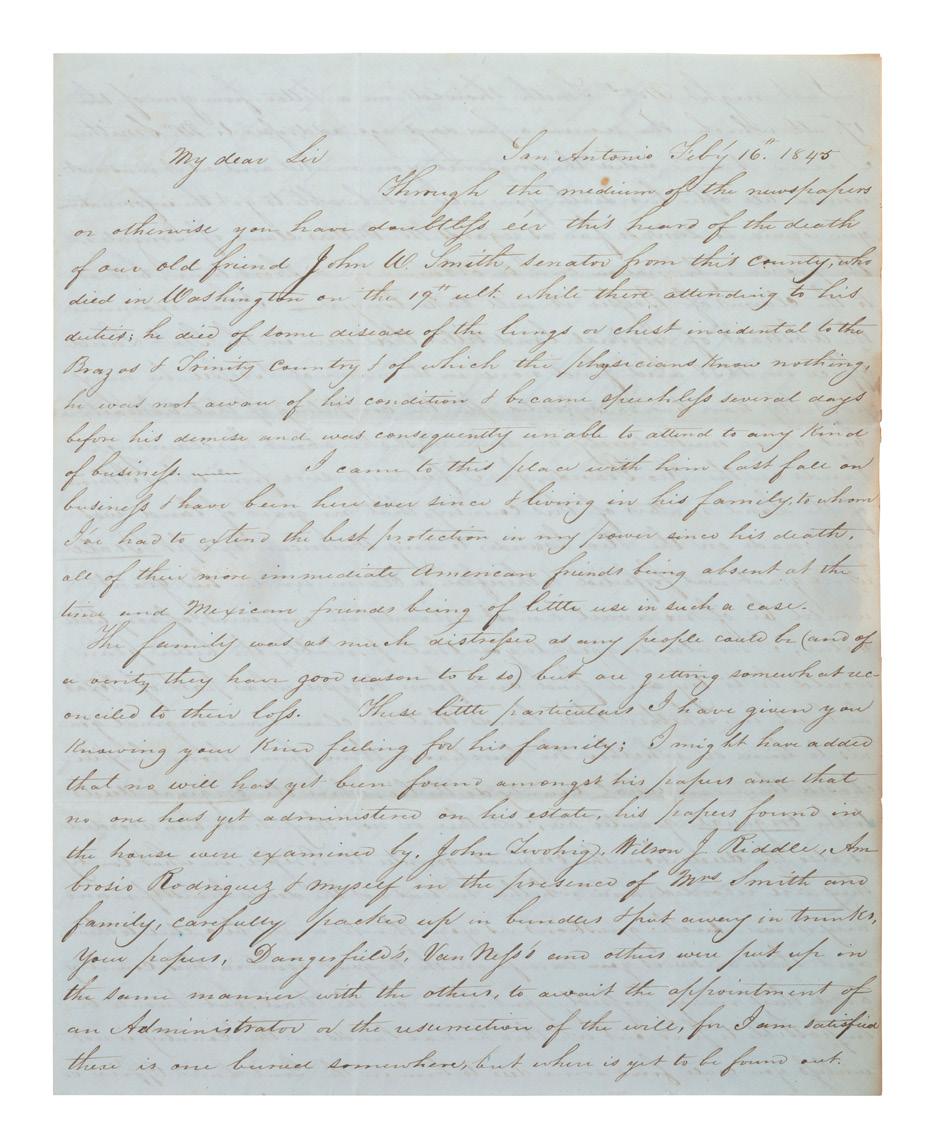 My dear Sir San Antonio Feb'y 16". 1845
Through the medium of the newspapers
or otherwise you have doubtless e'er this heard of the death
of our old friend John W. Smith, senator from this county, who
died in Washington on the 19" ult. while there attending to his
duties; he died of some disease of the lungs or chest incidental to the
Brazos & Trinity country & of which the physicians know nothing,
he was not aware of his condition & became speechless several days
before his demise and was consequently unable to attend to any kind
of business. I came to this place with him last fall on
business & have been here ever since & living in his family, to whom
I've had to extend the best protection in my power since his death,
all of their more immediate American friends being absent at the
time and Mexican friends being of little use in such a case.
The family was as much distressed as any people could be (and of
a verity they have good reason to be so) but are getting somewhat rec-
onciled to their loss. These little particulars I have given you
knowing your kind feeling for his family; I might have added
that no will has yet been found amongst his papers and that
no one has yet administered on his estate, his papers found in
the house were examined by, John Twohig, Wilson J Riddle, Am
brosio Rodriguez & myself in the presence of Mrs Smith and
family, carefully packed up in bundles & put away in trunks,
Your papers, Dangerfield's, Van Ness's and others were put up in
the same manner with the others, to await the appointment of
an Administrator or the resurrection of the will, for I am satisfied
there is one buried somewhere, but where is yet to be found out.